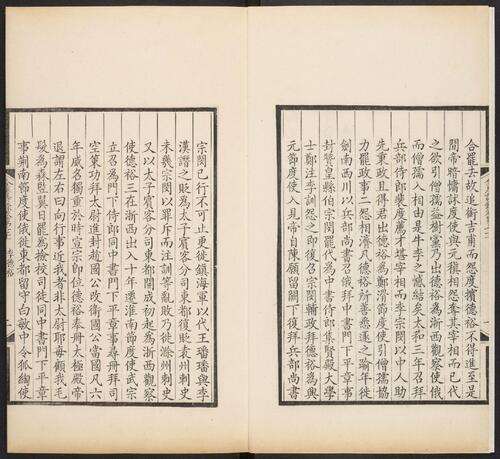 合罷去故追銜吉甫而怨度擯德裕不得進至是
間帝暗庸訹度使與元稹相怨奪其宰相而已代
之欲引僧孺益樹黨乃出德裕為浙西觀察使俄
而僧孺入相由是牛李之憾結矣太和三年召拜
兵部侍郎裴度薦才堪宰相而李宗閔以中人助
先秉政且得君出德裕為鄭滑節度使引僧孺協
力罷政事二怨相濟凡德裕所善悉逐之踰年徙
劍南西川以兵部尚書召俄拜中書門下平章事
封贊皇縣伯宗閔罷代為中書侍郎集賢殿大學
士鄭注李訓怨之即復召宗閔輔政拜德裕為興
元節度使入見帝自陳願留闕下復拜兵部尚書
宗閔已行不可止更徙鎮海軍以代王璠璠與李
漢譖之貶為太子賓客分司東都復貶袁州刺史
未幾宗閔以罪斥而注訓等亂敗乃徙滁州刺史
又以太子賓客分司東都開成初起為浙西觀察
使德裕三在浙西出入十年遷淮南節度使武宗
立召為門下侍郎同中書門下平章事尋冊拜司
空策功拜太尉進封趙國公改衛國公當國凡六
年威名獨重於時宣宗即位德裕奉冊太極殿帝
退謂左右曰向行事近我者非太尉耶每顧我毛
髮為森豎翼日罷為檢校司徒同中書門下平章
事荊南節度使俄徙東都留守白敏中令狐綯使
李德裕